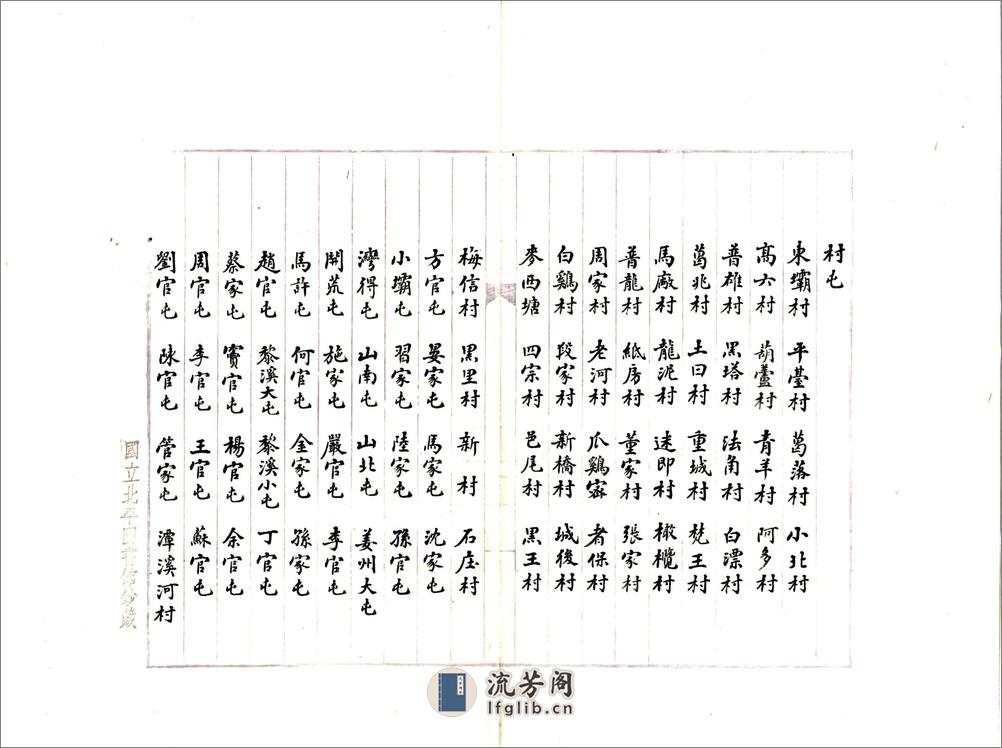 村屯
東壩村 平臺村 葛落村 小北村
髙六村 葫蘆村 青羊村 阿多村
普雄村 黑塔村 法角村 白漂村
萬兆村 土曰村 重城村 梵王村
馬廠村 龍泥村 速即村 橄欖村
普龍村 紙房村 董家村 張家村
周家村 老河村 爪鷄寨 者保村
白鷄村 段家村 新橋村 城後村
麥西塘 四宗村 邑尾村 黑王村
梅信村 黑里村 新村 石庄村
方官屯 晏家屯 馬家屯 沈家屯
小壩屯 習家屯 陸家屯 孫官屯
灣得屯 山南屯 山北屯 姜州大屯
開荒屯 施家屯 嚴官屯 李官屯
馬許屯 何官屯 金家屯 孫家屯
趙官屯 黎溪大屯 黎溪小屯 丁官屯
蔡家屯 竇官屯 楊官屯 余官屯
周官屯 李官屯 王官屯 蘇官屯
劉官屯 陳官屯 管家屯 潭溪河村
國立北平圖書館鈔藏
流芳阁
lfglib.cn